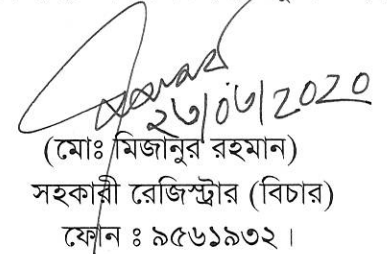 ২৬/০৬/2020
(মোঃ মিজানুর রহমান)
সহকারী রেজিস্ট্রার (বিচার)
ফোন ঃ ৯৫৬১৯৩২ ।